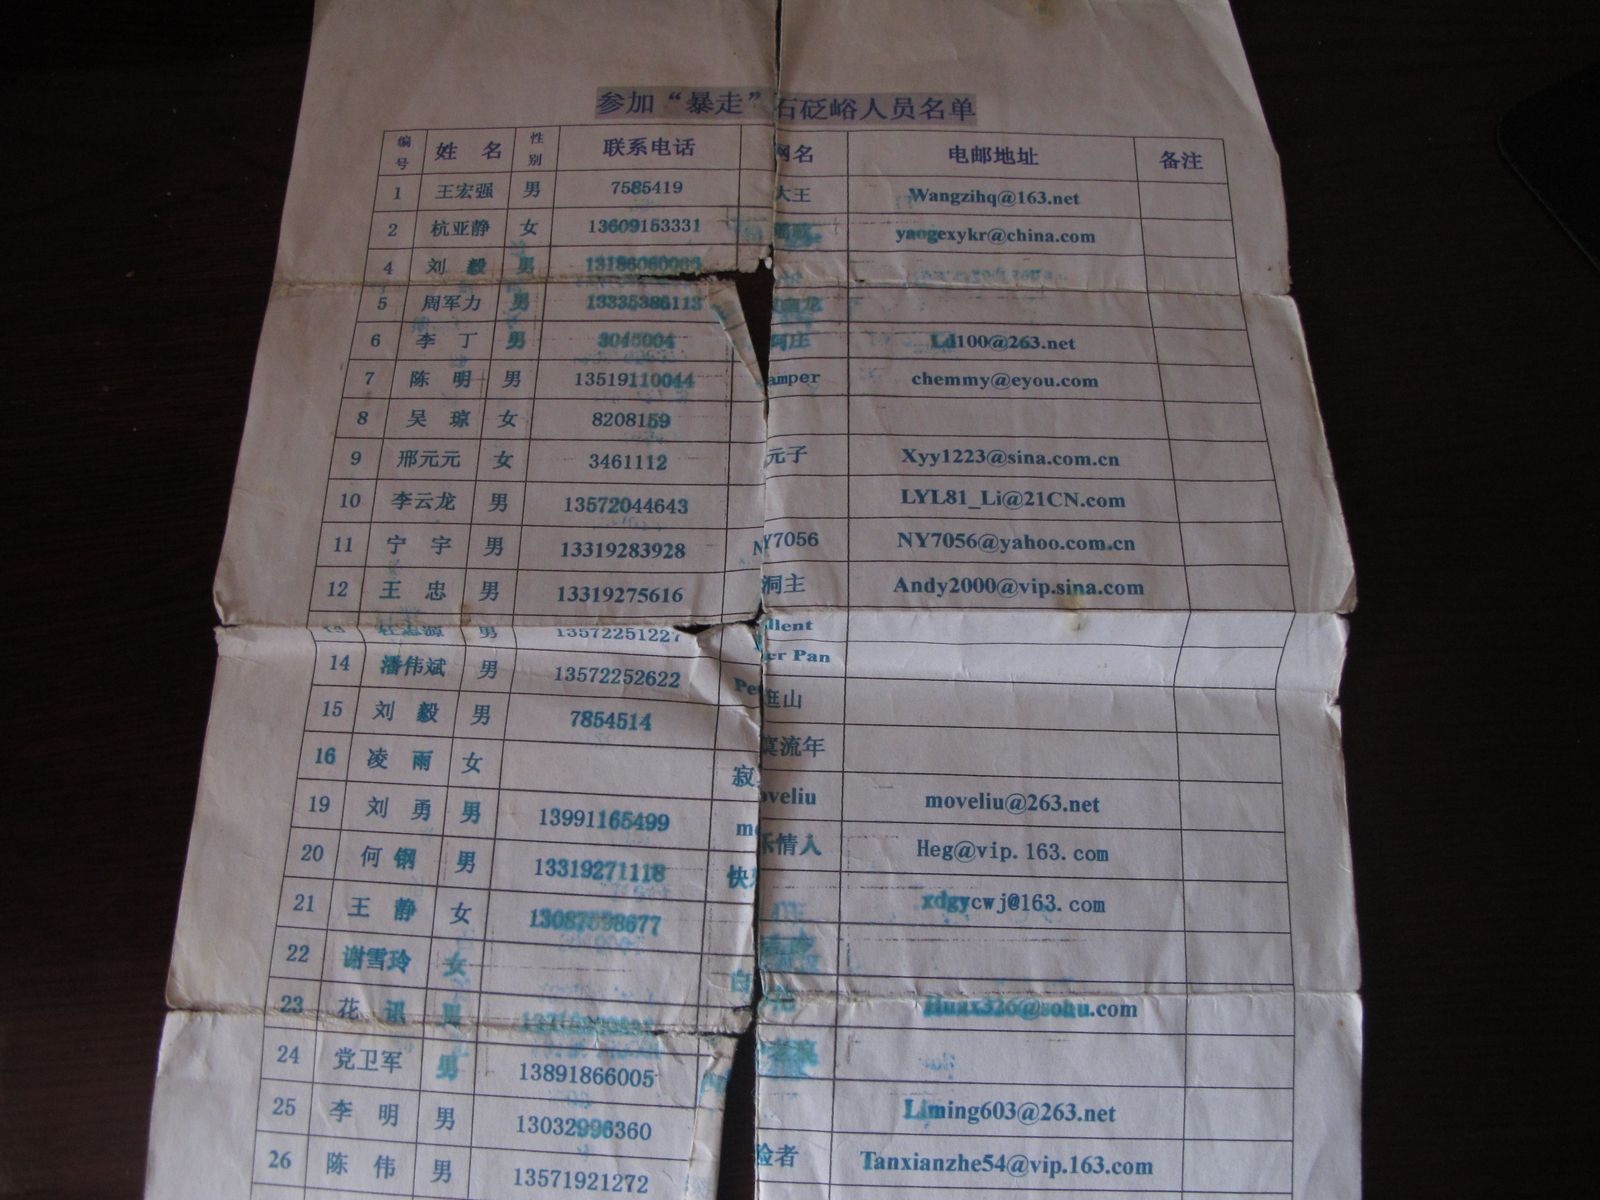 参加“暴走”石砭峪人员名单
编号 姓 名 性别 联系电话 网名 电邮地址 备注
1 王宏强 男 7585419 大王 Wangzihq@163.net
2 杭亚静 女 13609153331 yaogexykr@china.com
4 刘 毅 男
5 周军力 男 13335386113
6 李 丁 男 3045004 Ld100@263.net
7 陈 明 男 13519110044 amper chemmy@eyou.com
8 吴 琼 女 8208159
9 邢元元 女 3461112 元子 Xyy1223@sina.com.cn
10 李云龙 男 13572044643 LYL81_Li@21CN.com
11 宁 宇 男 13319283928 NY7056 NY7056@yahoo.com.cn
12 王 忠 男 13319275616 洞主 Andy2000@vip.sina.com
男 13572251227 llent
14 潘伟斌 男 13572252622 Peter Pan
15 刘 毅 男 7854514 逛山
16 凌 雨 女 寂寞流年
19 刘 勇 男 13991165499 moveliu moveliu@263.net
20 何 钢 男 13319271118 快乐情人 Heg@vip.163.com
21 王 静 女 13087598677 xdgycwj@163.com
22 谢雪玲 女
23 花 男 Huax326@sohu.com
24 党卫军 男 13891866005
25 李 明 男 13032996360 Liming603@263.net
26 陈 伟 男 13571921272 险者 Tanxianzhe54@vip.163.com